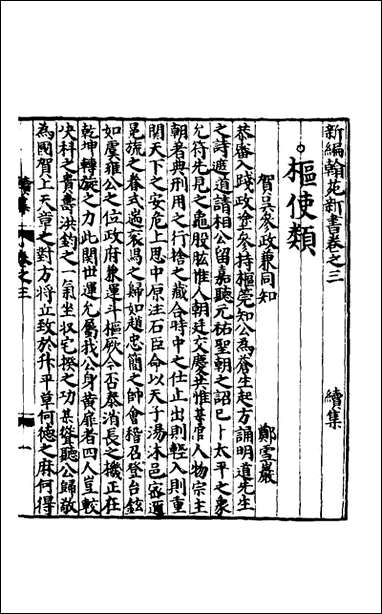 新編翰苑新書卷之三　續集
樞使類
賀吳參政兼同知　鄭雪巖
恭審入踐政塗參持樞筦知公為蒼生起方誦明道先生
之詩遮道請相公留嘉聽元祐聖朝之詔已卜太平之象
允符先見之龜股肱惟人朝廷交慶共惟某官人物宗主
朝著典刑用之行捨之藏合時中之仕止出則輕入則重
關天下之安危上思中原注石臣命以天子湯沐邑宻邇
冕旒之眷式遄衮舄之歸如趙忠簡之帥會稽召登台鉉
如虞雍公之位政府兼運斗樞厥今否泰消長之機正在
乾坤轉旋之力此関世運允屬我公身黄扉者四人豈較
決科之貴壽洪鈞之一氣坐収宅揆之功某聳聽公歸敬
為國賀上天章之對方將立致於升平草何德之麻何得